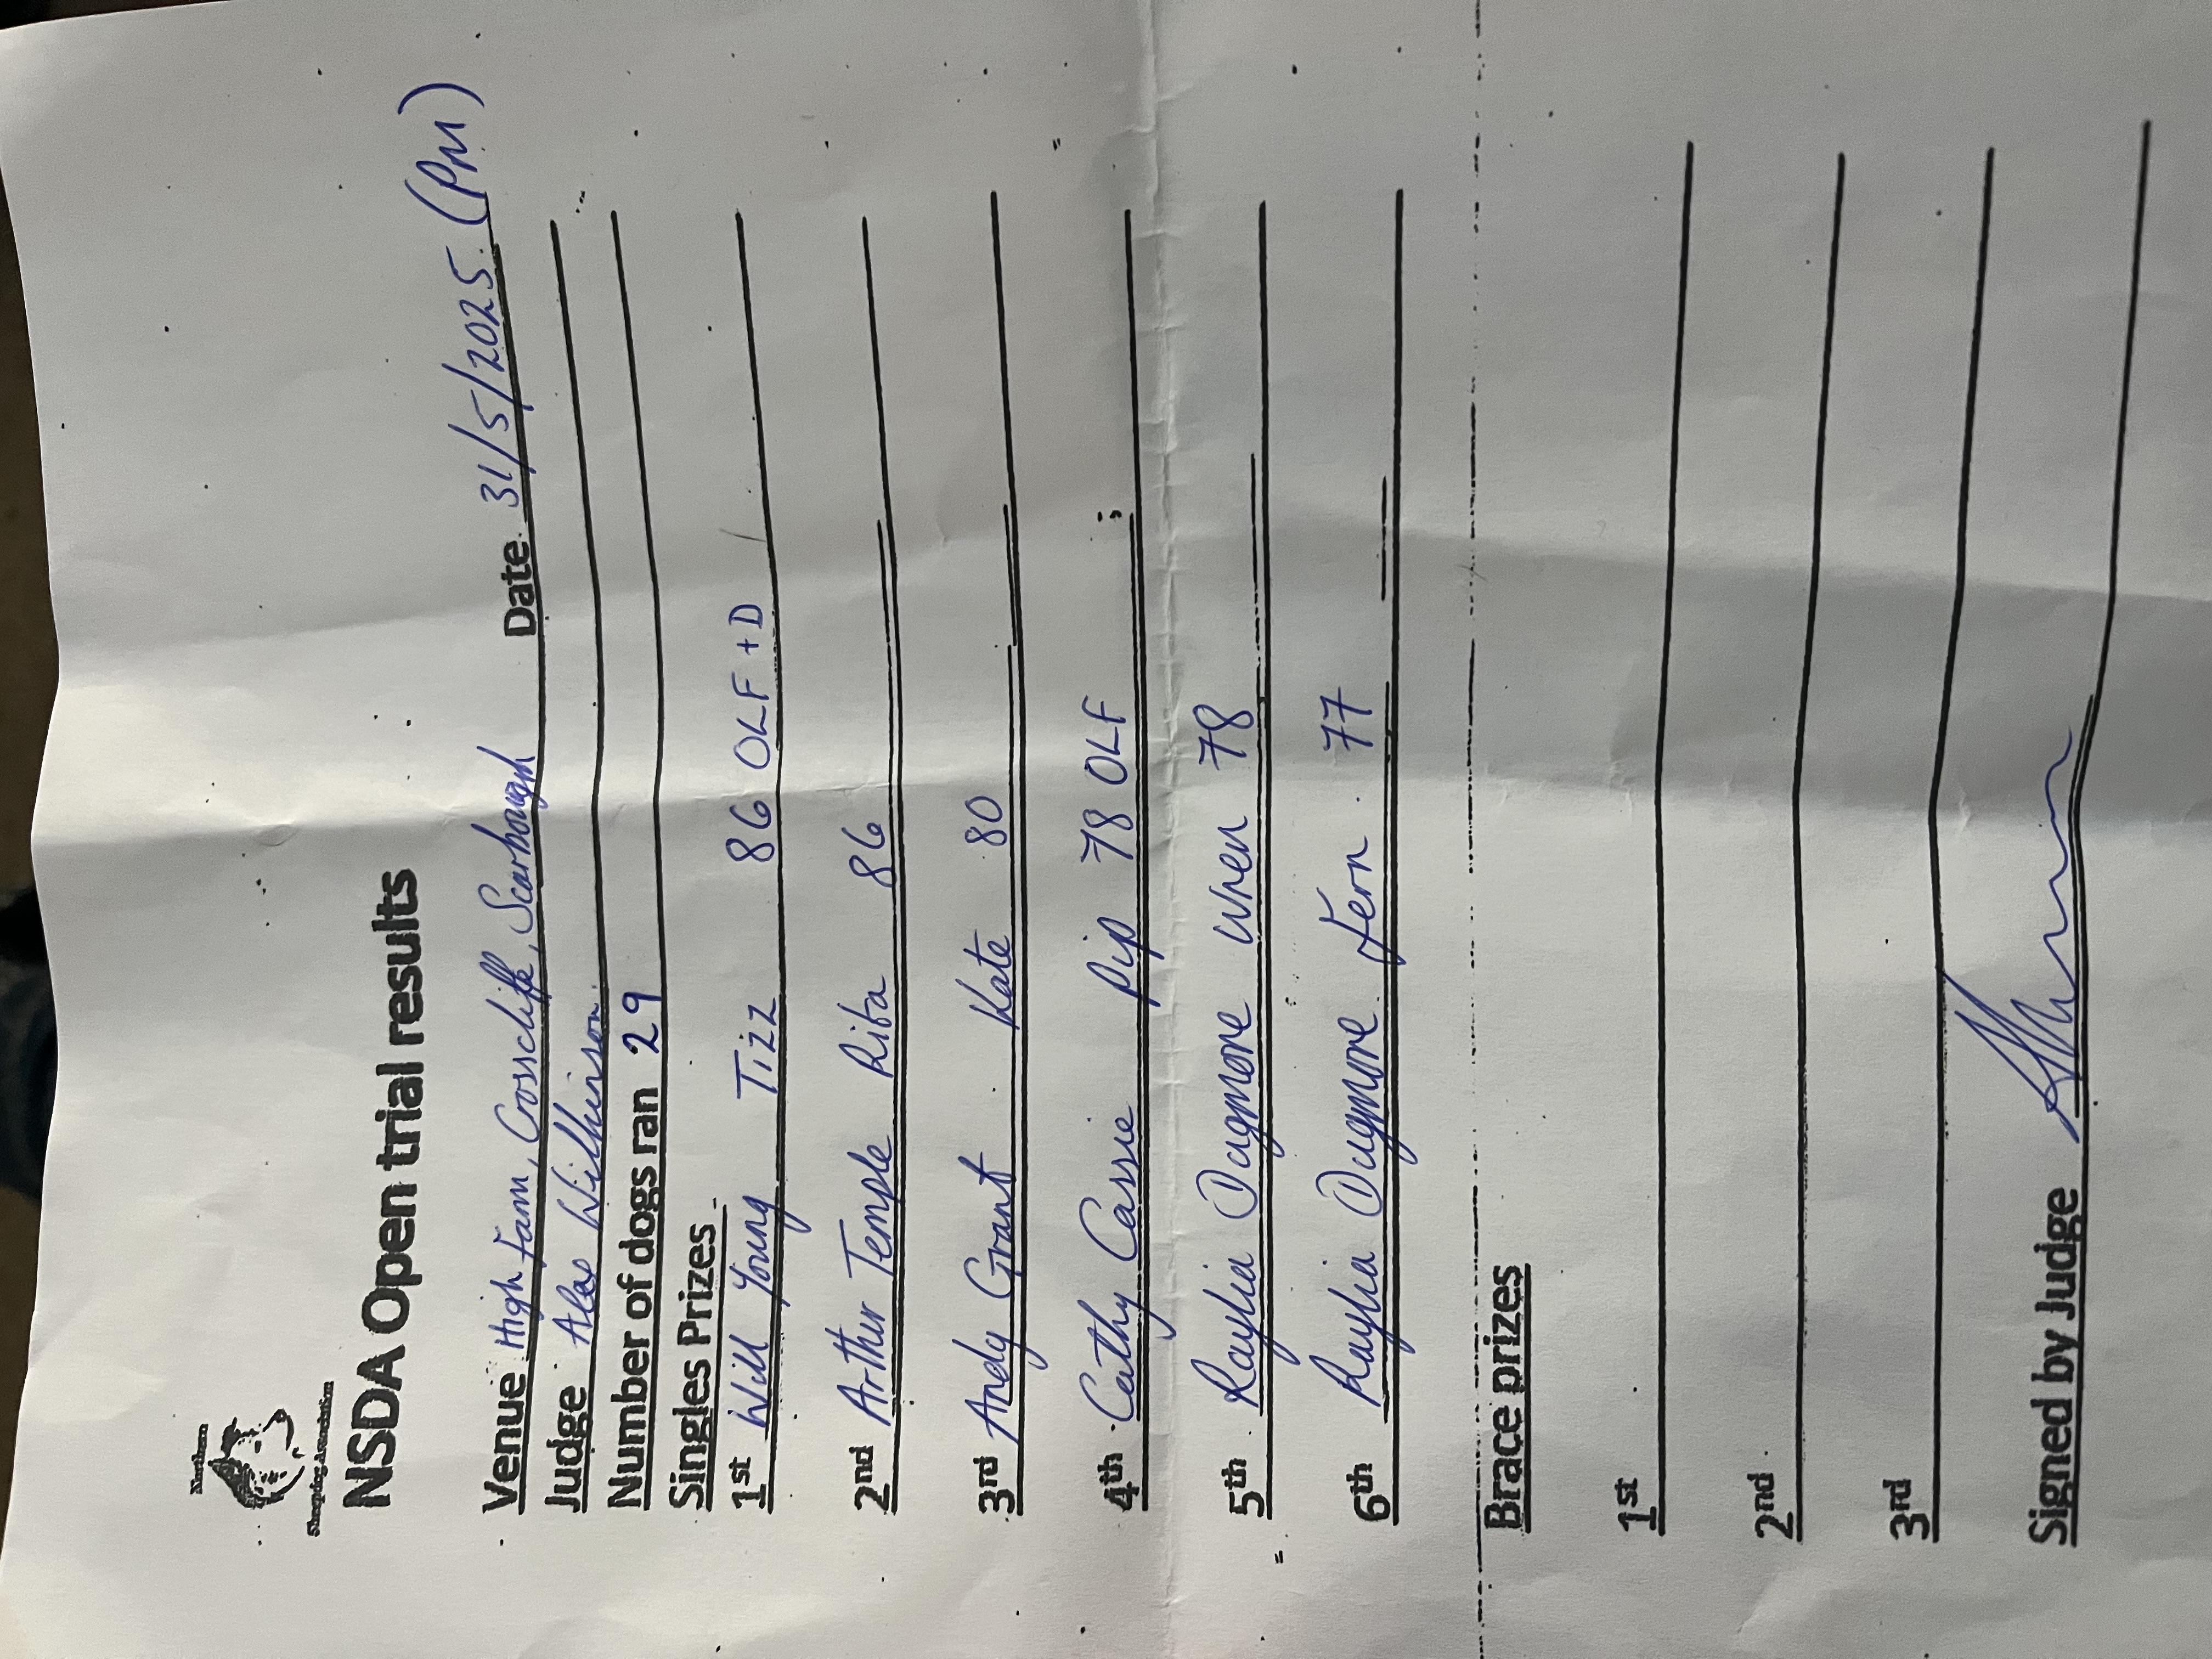 Northern
Sheepdog Association
NSDA Open trial results
Venue High Farm, Crosscliffe, Scarborough Date 31/5/2025 (PM)
Judge Alex Wilkinson
Number of dogs ran 29
Singles Prizes
1st Will Young Tizz 86 OLF + D
2nd Arthur Temple Rita 86
3rd Andy Grant Kate 80
4th Cathy Cassie Pip 78 OLF
5th Raylia Dugmore Wren 78
6th Raylia Dugmore Fern 77
Brace prizes
1st
2nd
3rd
Signed by Judge